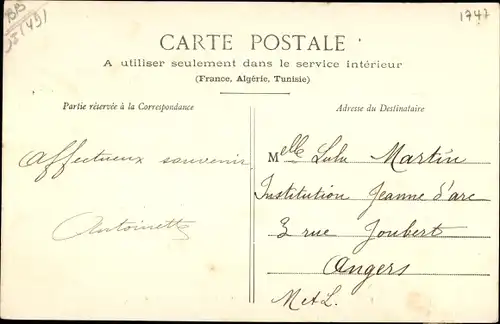 1747
CARTE POSTALE
A utiliser seulement dans le service intérieur
(France, Algérie, Tunisie)
Partie réservée à la Correspondance
Adresse du Destinataire
Affectueux souvenir
Antoinette
Melle Lulu Martin
Institution Jeanne d'arc
3 rue Joubert
Angers
M et L.